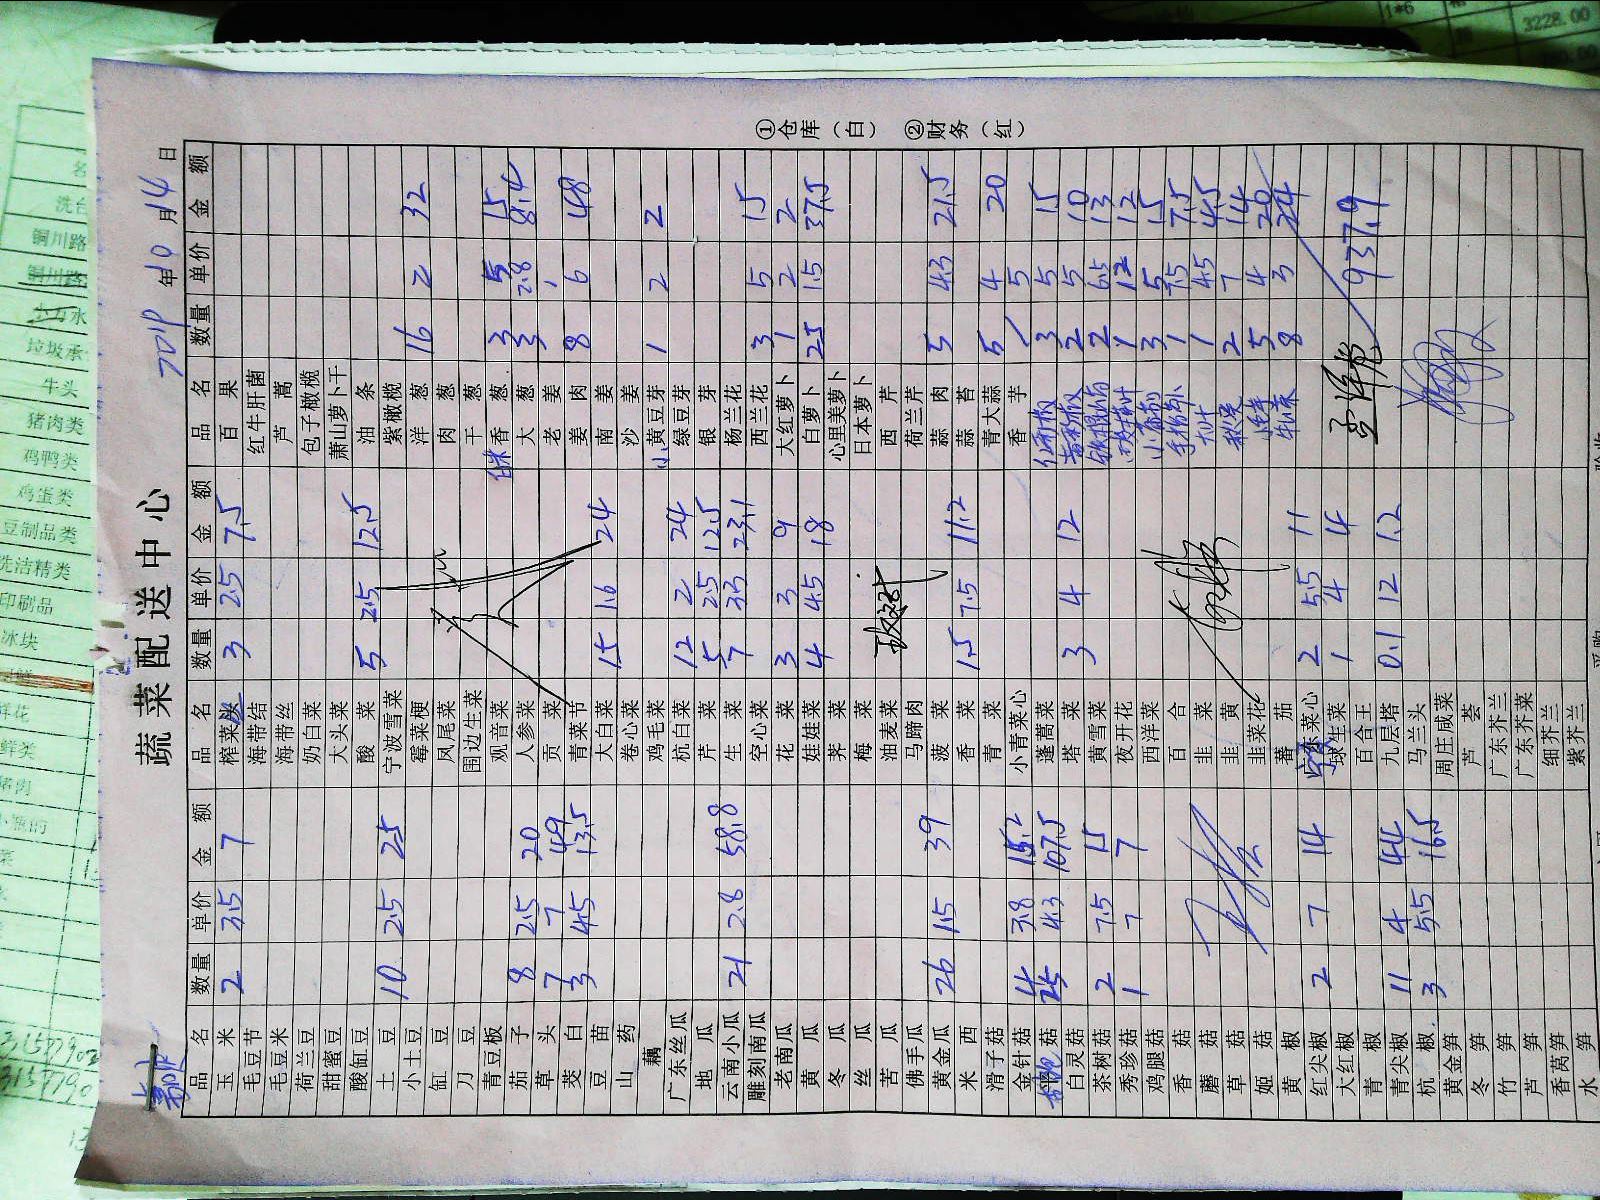 蔬菜配送中心
年10月14日
品名 数量 单价 金额 品名 数量 单价 金额 品名 数量 单价 金额
玉米 2 3.5 7 榨菜丝 3 2.5 7.5 百果
毛豆节 海带结 红牛肝菌
毛豆米 海带丝 芦蒿
荷兰豆 奶白菜 包子橄榄
甜蜜豆 大头菜 萧山萝卜干
酸缸豆 酸菜 5 2.5 12.5 油条
土豆 10 2.5 25 宁波雪菜 紫橄榄
小土豆 霉菜梗 洋葱 16 2 32
缸豆 凤尾菜 肉葱
刀豆 围边生菜 干葱
青豆板 观音菜 香葱 3 5 15
茄子 8 2.5 20 人参菜 大葱 3 2.8 8.4
草头 7 7 49 贡菜 老姜
茭白 3 4.5 13.5 青菜节 姜肉 8 6 48
豆苗 大白菜 15 1.6 24 南姜
山药 卷心菜 沙姜
藕 鸡毛菜 小黄豆芽 1 2 2
广东丝瓜 杭白菜 12 2 24 绿豆芽
地瓜 芹菜 5 2.5 12.5 银芽
云南小瓜 21 2.8 58.8 生菜 7 3.3 23.1 杨兰花
雕刻南瓜 空心菜 西兰花 3 5 15
老南瓜 花菜 3 3 9 大红萝卜 1 2 2
黄瓜 娃娃菜 4 4.5 18 白萝卜 25 1.5 37.5
冬瓜 荠菜 心里美萝卜
丝瓜 梅菜 日本萝卜
苦瓜 油麦菜 西芹
佛手瓜 马蹄肉 荷兰芹
黄金瓜 26 1.5 39 菠菜 蒜肉 5 4.3 21.5
米西 香菜 1.5 7.5 11.2 蒜苔
滑子菇 青菜 青大蒜 5 4 20
金针菇 4 3.8 15.2 小青菜心 香芋 5
菇 25 4.3 107.5 蓬蒿菜 3 5 15
白灵菇 塔菜 3 4 12 2 5 10
茶树菇 2 7.5 15 黄雪菜 2 6.5 13
秀珍菇 1 7 7 夜开花 1 12 12
鸡腿菇 西洋菜 3 5 15
香菇 百合 1 7.5 7.5
蘑菇 韭菜 1 4.5 4.5
草菇 韭黄 2 7 14
姬菇 韭菜花 5 4 20
黄椒 蕃茄 8 3 24
红尖椒 2 7 14 菜心 2 5.5 11
大红椒 球生菜 1 4 4
青椒 百合王 937.9
青尖椒 11 4 44 九层塔 0.1 12 1.2
杭椒 3 5.5 16.5 马兰头
黄金笋 周庄咸菜
冬笋 芦荟
竹笋 广东芥兰
芦笋 广东芥菜
香莴笋 细芥兰
水笋 紫芥兰
①仓库（白） ②财务（红）
洗台
铜川路
铜川路
垃圾承
牛头
猪肉类
鸡鸭类
鸡蛋类
豆制品类
洗洁精类
印刷品
冰块
鲜花
鲜类
1*6
3228.00